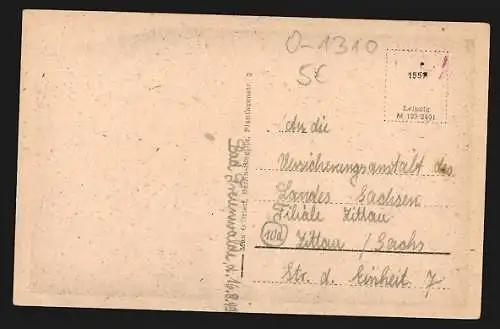 O-1310
5€
1557
Leipzig
M 123-2401
An die
Versicherungsanstalt des
Landes Sachsen
Filiale Zittau
10a Zittau / Sachs
Str. d. Einheit 7
Bad Freienwalde,